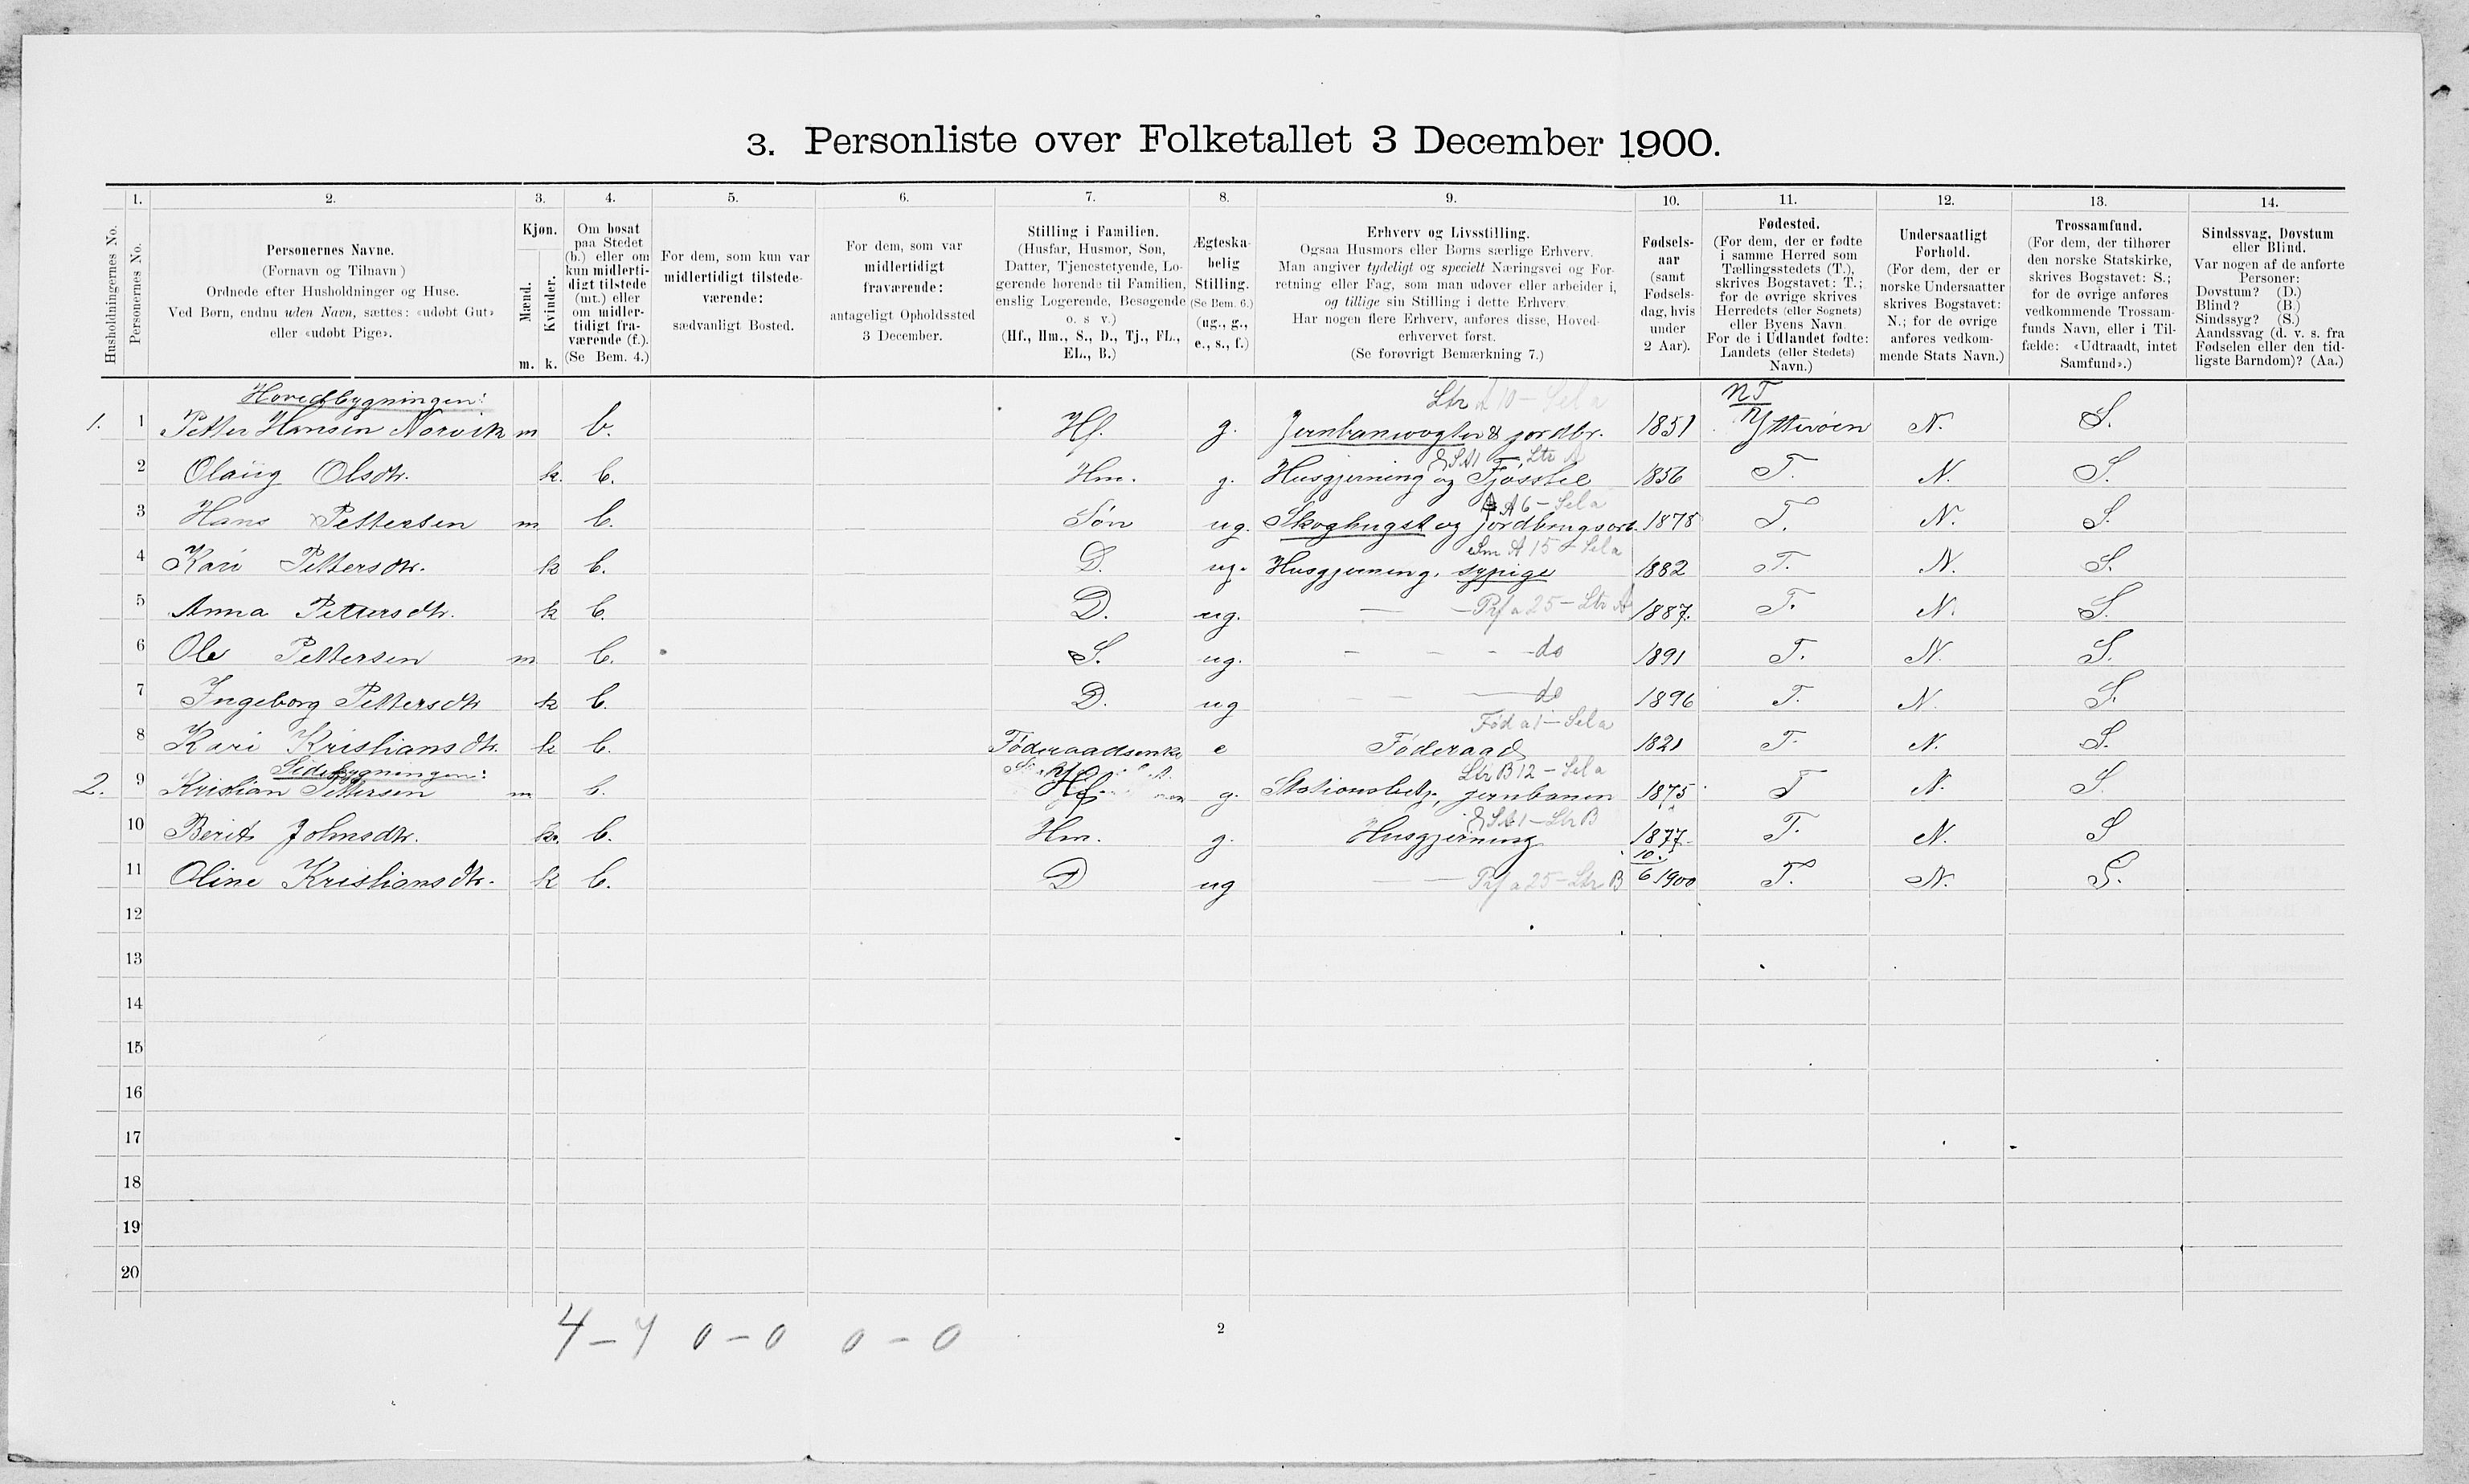 3. Personliste over Folketallet 3 December 1900.
Husholdningernes No.
1.
Personernes No.
2.
Personernes Navne.
(Fornavn og Tilnavn)
Ordnede efter Husholdninger og Huse.
Ved Børn, endnu uden Navn, sættes: «udøbt Gut»
eller «udøbt Pige».
3.
Kjøn.
Mænd.
Kvinder.
m. k.
4.
Om bosat
paa Stedet
(b.) eller om
kun midlerti-
digt tilstede
(mt.) eller
om midler-
tidigt fra-
værende (f.).
(Se Bem. 4.)
5.
For dem, som kun var
midlertidigt tilstede-
værende:
sædvanligt Bosted.
6.
For dem, som var
midlertidigt
fraværende:
antageligt Opholdssted
3 December.
7.
Stilling i Familien.
(Husfar, Husmor, Søn,
Datter, Tjenestetyende, Lo-
gerende hørende til Familien,
enslig Logerende, Besøgende
o. s v.)
(Hf., Hm., S., D., Tj., FL.,
EL., B.)
8.
Ægteska-
belig
Stilling.
(Se Bem. 6.)
(ug., g.,
e., s., f.)
9.
Erhverv og Livsstilling.
Ogsaa Husmors eller Børns særlige Erhverv.
Man angiver tydeligt og specielt Næringsvei og For-
retning eller Fag, som man udøver eller arbeider i,
og tillige sin Stilling i dette Erhverv
Har nogen flere Erhverv, anføres disse, Hoved-
erhvervet først.
(Se forøvrigt Bemærkning 7.)
10.
Fødsels-
aar
(samt
Fødsels-
dag, hvis
under
2 Aar).
11.
Fødested.
(For dem, der er fødte
i samme Herred som
Tællingsstedets (T.),
skrives Bogstavet: T.;
for de øvrige skrives
Herredets (eller Sognets)
eller Byens Navn.
For de i Udlandet fødte:
Landets (eller Stedets)
Navn.)
12.
Undersaatligt
Forhold.
(For dem, der er
norske Undersaatter
skrives Bogstavet:
N.; for de øvrige
anføres vedkom-
mende Stats Navn.)
13.
Trossamfund.
(For dem, der tilhører
den norske Statskirke,
skrives Bogstavet: S.;
for de øvrige anføres
vedkommende Trossam-
funds Navn, eller i Til-
fælde: «Udtraadt, intet
Samfund».)
14.
Sindssvag, Døvstum
eller Blind.
Var nogen af de anførte
Personer:
Døvstum? (D.)
Blind? (B.)
Sindssyg? (S.)
Aandssvag (d. v. s. fra
Fødselen eller den tid-
ligste Barndom)? (Aa.)
Hovedbygningen: Ltr A 10 – Sel a NT
1. 1 Petter Hansen Norvik m b. Hf. g. Jernbanevogter & jordbr. 1851 Ytterøen N. S.
& SA1 – Ltr A
2 Olaug Olsdtr. k. b. Hm. g. Husgjerning og Fjøsstel 1856 T. N. S.
A 6 – Sel a
3 Hans Pettersen m b. Søn ug. Skoghugst og jordbrugsarb. 1878 T. N. S.
Sm A 15 – Sel a
4 Kari Pettersdtr. k b. D. ug. Husgjerning, sypige 1882 T. N. S.
5 Anna Pettersdtr. k b. D. ug. — — Prf a 25 – Ltr A 1887. T. N. S.
6 Ole Pettersen m b. S. ug. – – – do 1891 T. N. S.
7 Ingeborg Pettersdtr k b. D. ug – – — do 1896 T. N. S.
Fød a 1 – Sel a
8 Kari Kristiansdtr. k b. Føderaadsenke e Føderaad 1821 T. N. S.
Sidebygningen: Ltr B 12 – Sel a
2. 9 Kristian Pettersen m b. Hf g. Stationsbetj., jernbanen 1875 T N. S.
& SA1 – Ltr B
10 Berit Johnsdtr. k. b. Hm. g. Husgjerning 1877 T. N. S
11 Oline Kristiansdtr. k b. D ug — — Prf a 25 – Ltr B 10/6 1900 T. N. S.
12
13
14
15
16
17
18
19
20
4 – 7 0 – 0 0 – 0
2